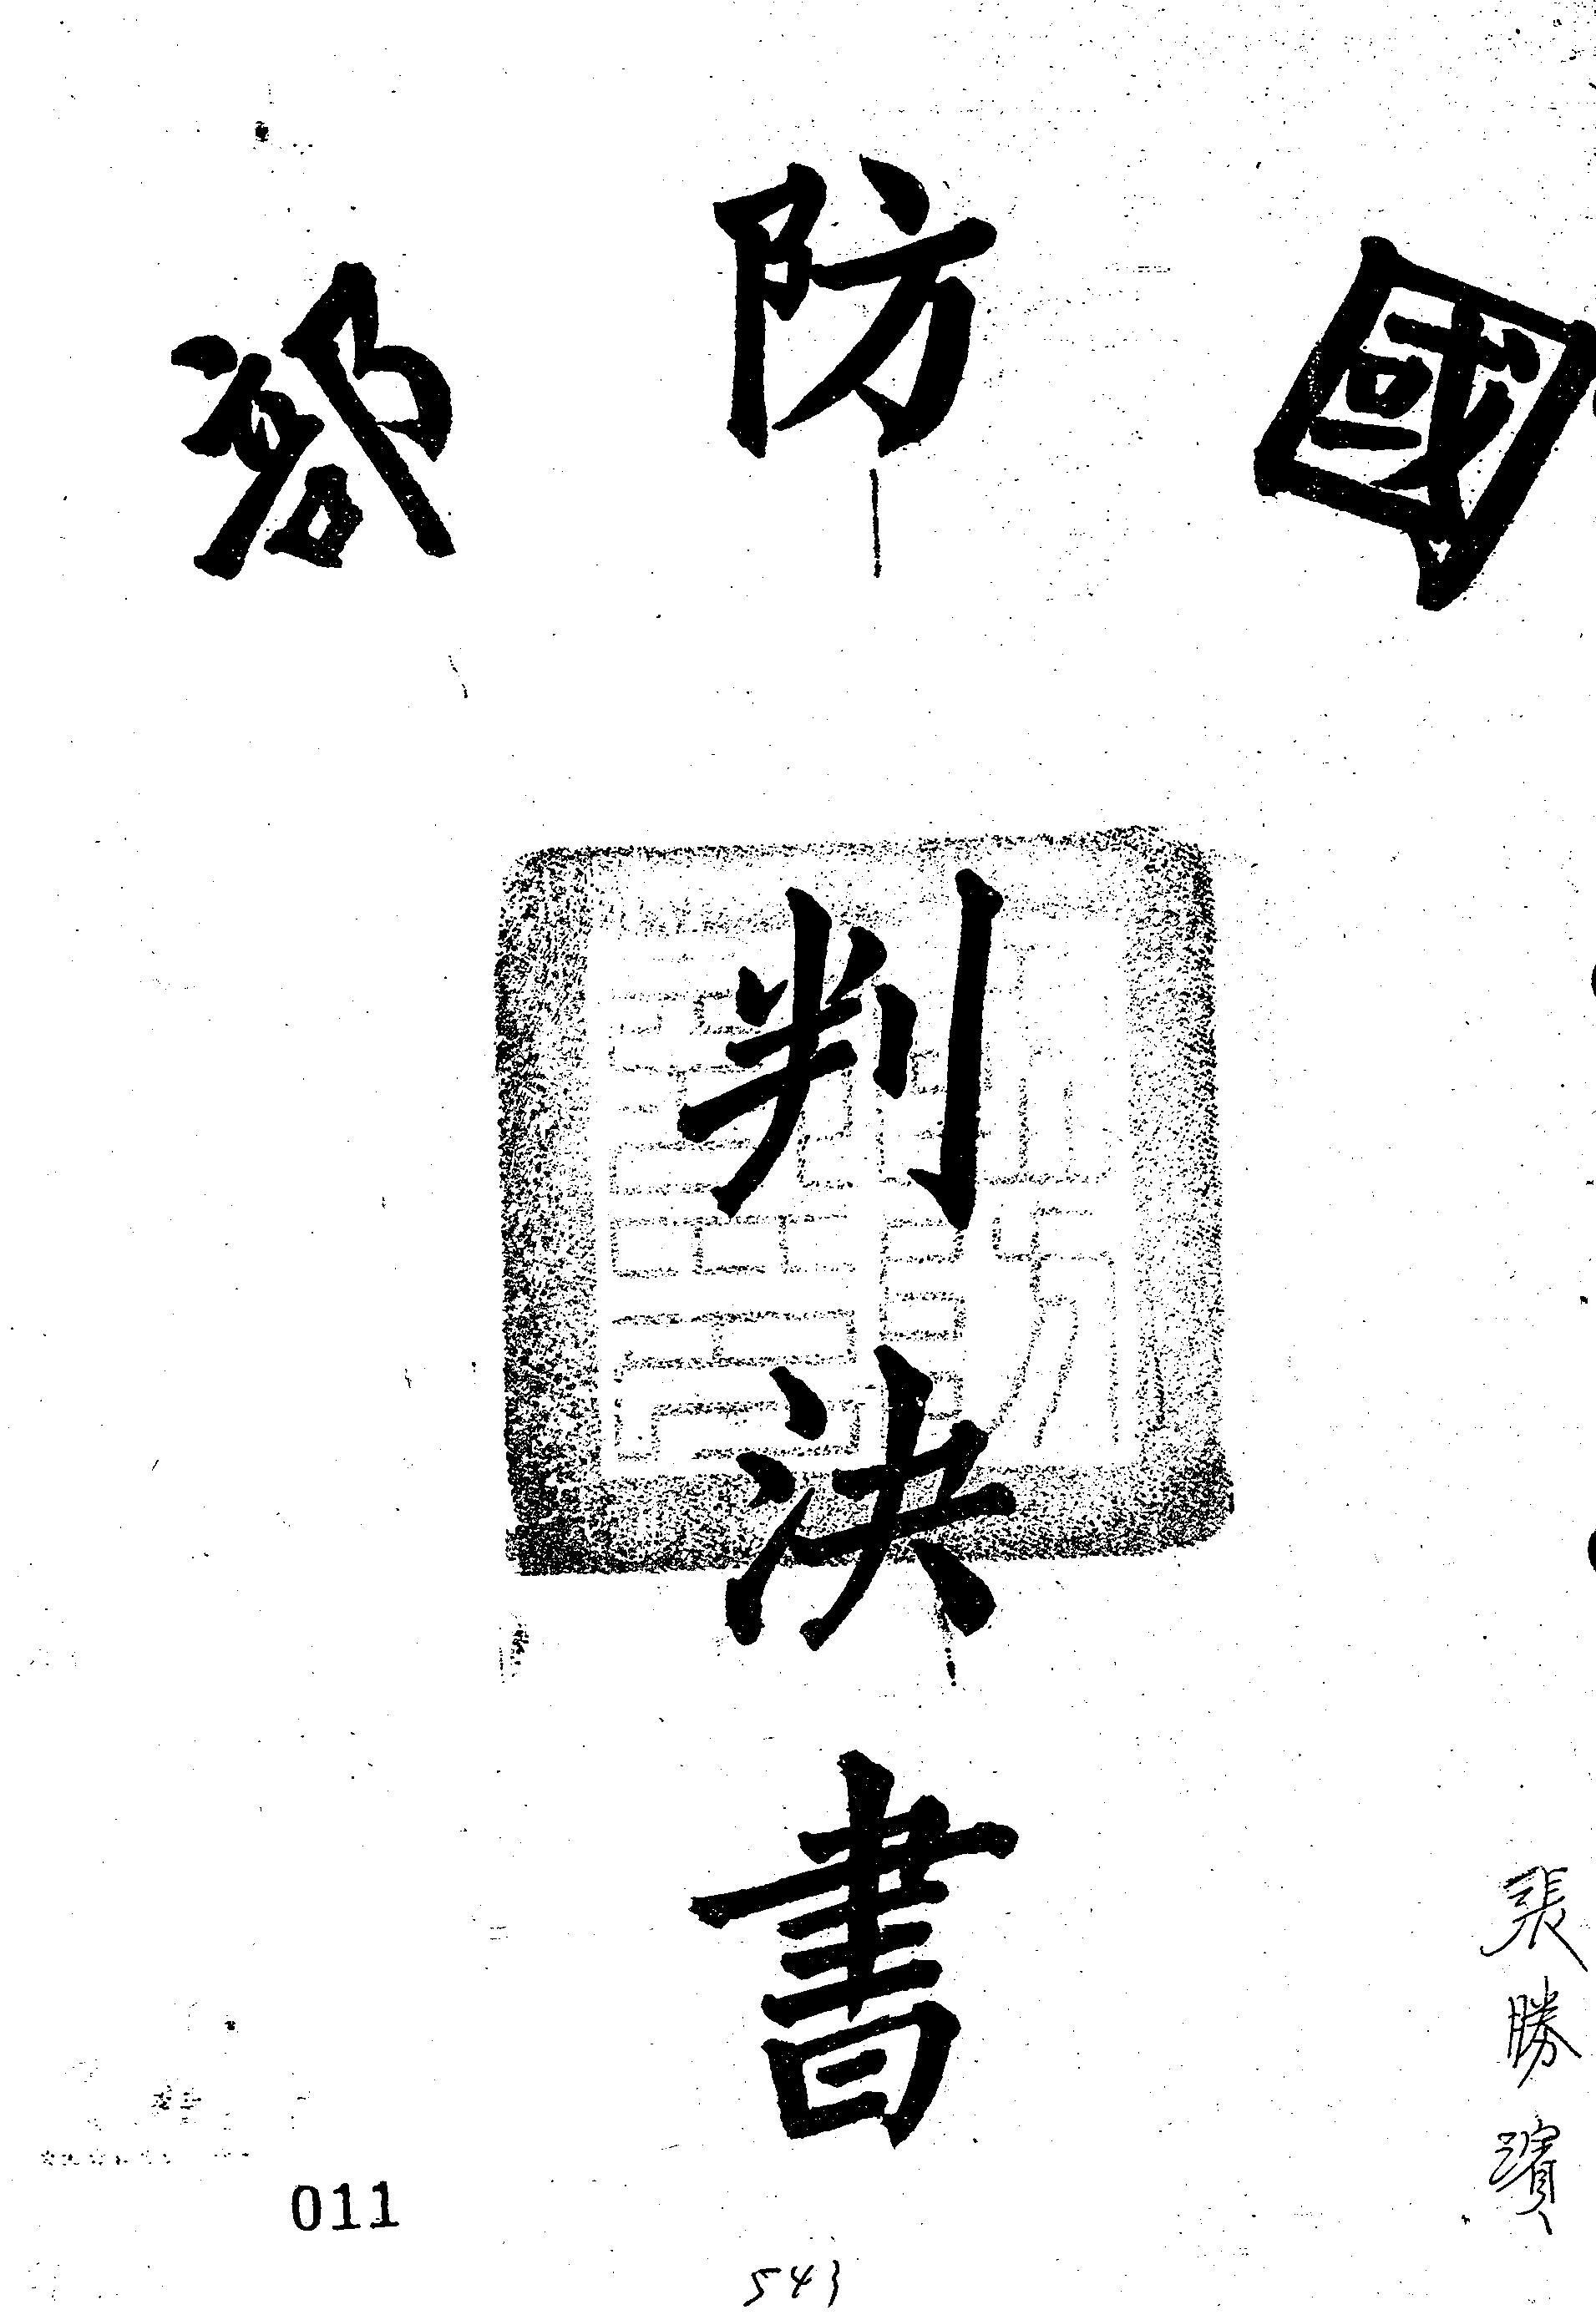 國防部
判決書
張勝濱
011
543